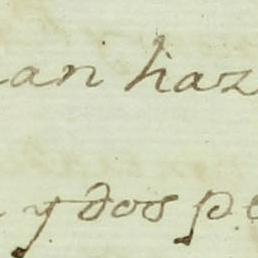 an haz
y dos pe